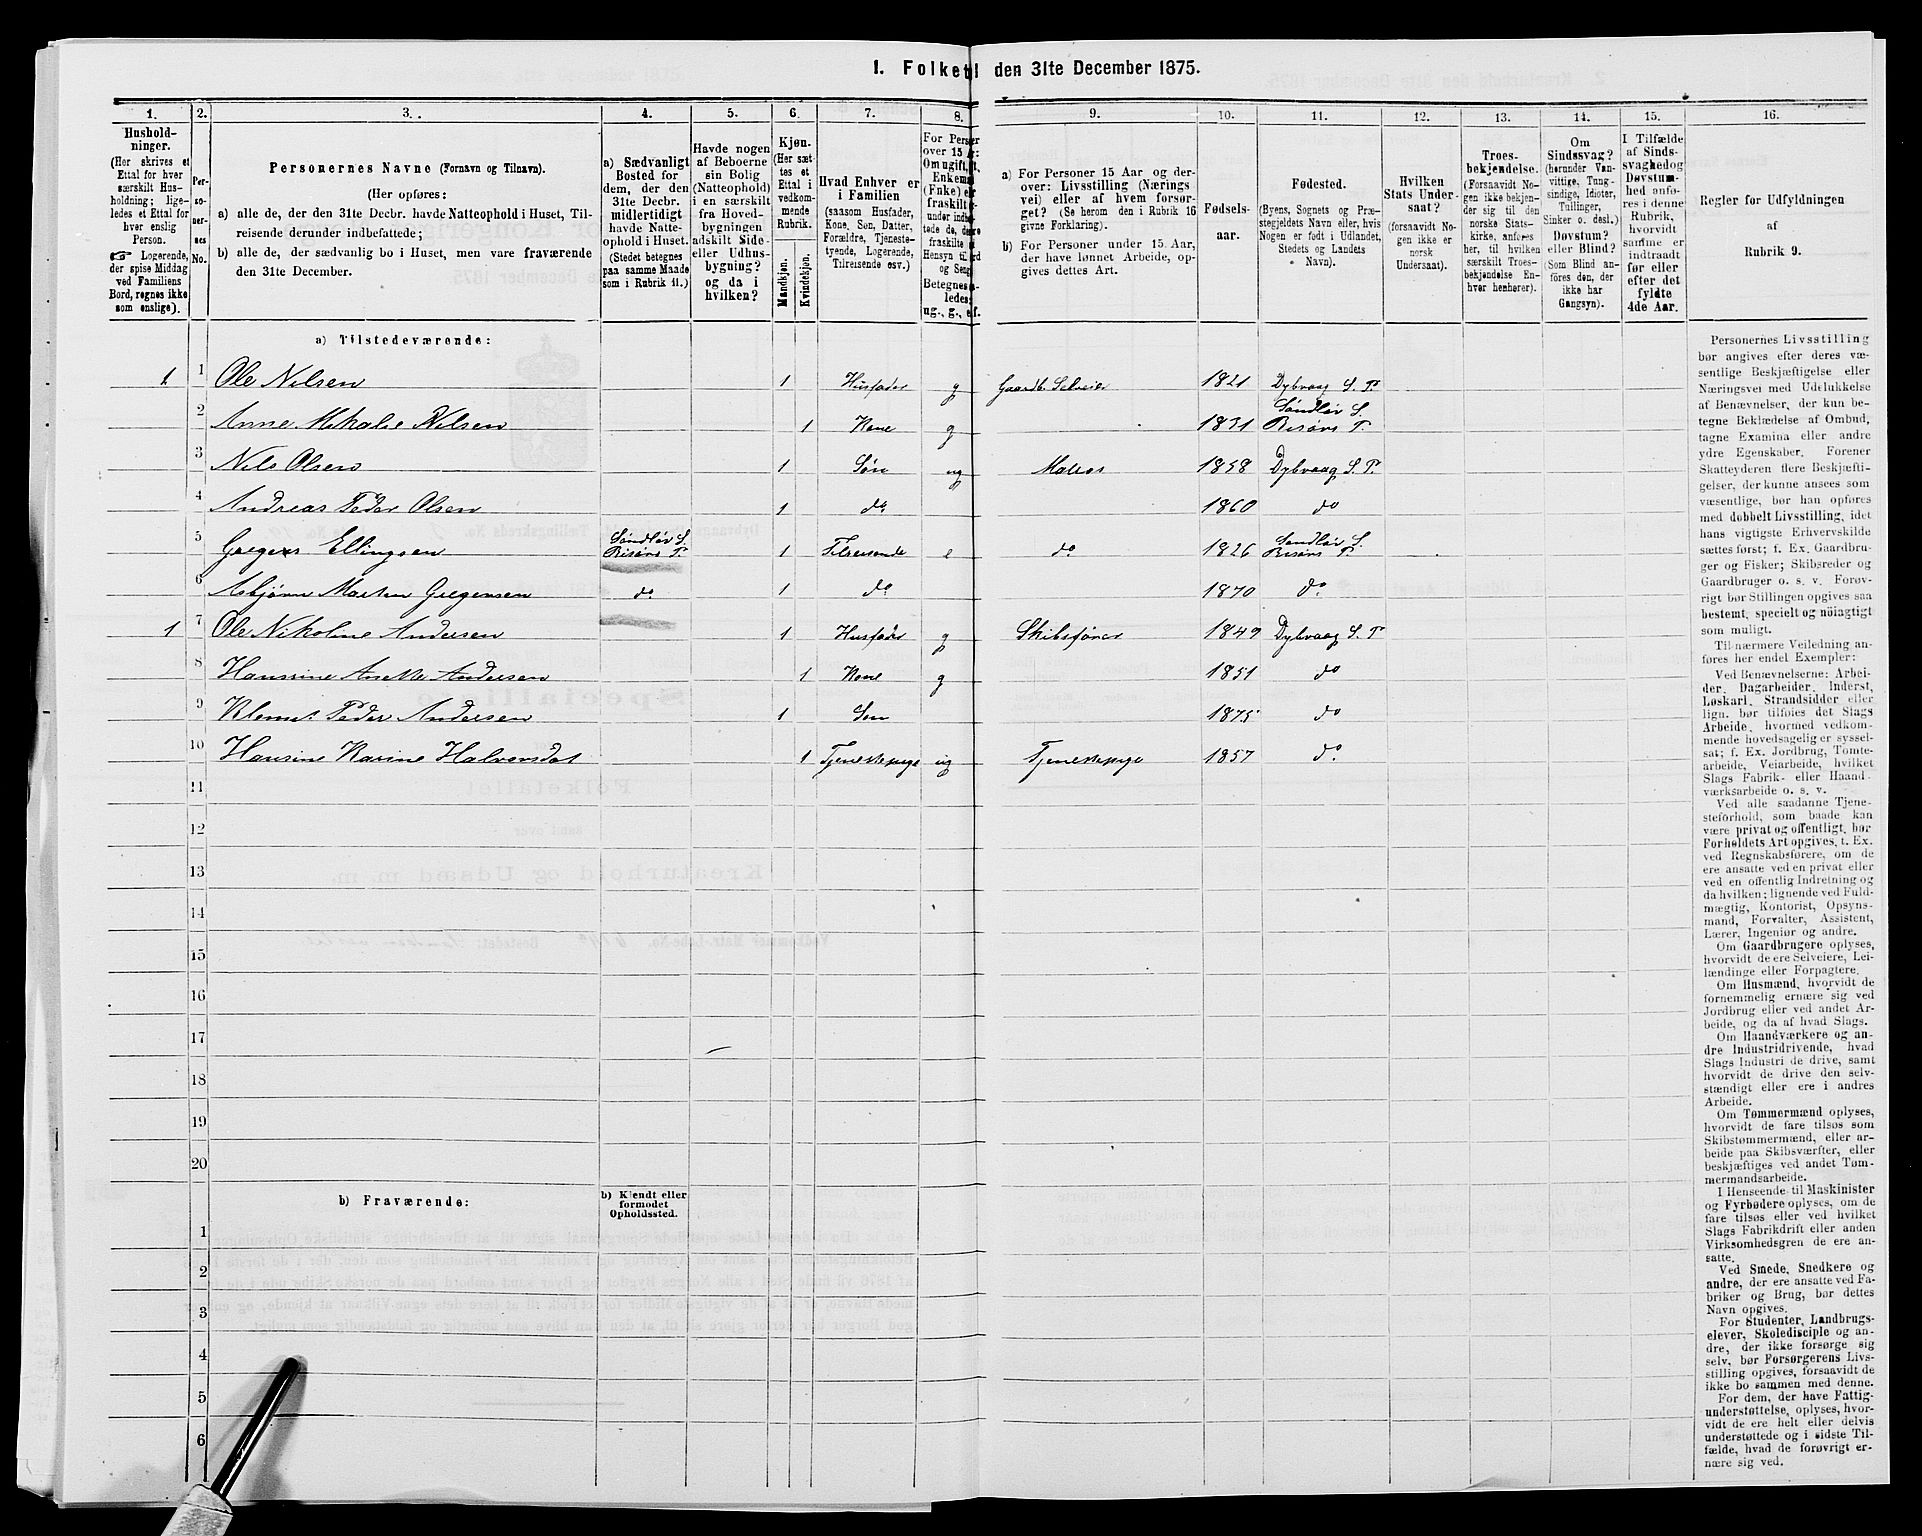 1. Folketal den 31te December 1875.
1. 2. 3. 4. 5. 6. 7. 8. 9. 10. 11. 12. 13. 14. 15. 16.
Hushold-
ninger.
(Her skrives et
Ettal for hver
særskilt Hus-
holdning; lige-
ledes et Ettal for
hver enslig
Person.
☞ Logerende,
der spise Middag
ved Familiens
Bord, regnes ikke
som enslige).
Per-
so-
ner-
nes
No.
Personernes Navne (Fornavn og Tilnavn).
(Her opføres:
a) alle de, der den 31te Decbr. havde Natteophold i Huset, Til-
reisende derunder indbefattede;
b) alle de, der sædvanlig bo i Huset, men vare fraværende
den 31te December.
a) Sædvanligt
Bosted for
dem, der den
31te Decbr.
midlertidigt
havde Natte-
ophold i Huset.
(Stedet betegnes
paa samme Maade
som i Rubrik 11.)
Havde nogen
af Beboerne
sin Bolig
(Natteophold)
i en særskilt
fra Hoved-
bygningen
adskilt Side-
eller Udhus-
bygning?
og da i
hvilken?
Kjøn.
(Her sæt-
tes et
Ettal i
vedkom-
mende
Rubrik.
Mandkjøn.
Kvindekjøn.
Hvad Enhver er
i Familien
(saasom Husfader,
Kone, Søn, Datter,
Forældre, Tjeneste-
tyende, Logerende,
Tilreisende osv.)
For Perso
over 15
Om ugift,
Enkema
(Fnke) e
fraskilt
under
tede de,
fraskilte
Hensyn til
og Seng
Betegnes
ledes:
ug., g., e. f.
a) For Personer 15 Aar og der-
over: Livsstilling (Nærings
vei) eller af hvem forsør-
get? (Se herom den i Rubrik 16
givne Forklaring).
b) For Personer under 15 Aar,
der have lønnet Arbeide, op-
gives dettes Art.
Fødsels-
aar.
Fødested.
(Byens, Sognets og Præ-
stegjeldets Navn eller, hvis
Nogen er født i Udlandet,
Stedets og Landets
Navn).
Hvilken
Stats Under-
saat?
(forsaavidt No-
gen ikke er
norsk
Undersaat).
Troes-
bekjendelse.
(Forsaavidt No-
gen ikke bekjen-
der sig til den
norske Stats-
kirke, anføres
her, til hvilken
særskilt Troes-
bekjendelse En-
hver henhører).
Om
Sindssvag?
(herunder Van-
vittige, Tung-
sindige, Idioter,
Tullinger,
Sinker o. desl.)
Døvstum?
eller Blind?
(Som Blind an-
føres den, der
ikke har
Gangsyn).
I Tilfælde
af Sinds-
svaghed og
Døvstum-
hed anfø-
res i denne
Rubrik,
hvorvidt
samme er
indtraadt
før eller
efter det
fyldte
4de Aar.
Regler for Udfyldningen
af
Rubrik 9.
a) Tilstedeværende:
1 1 Ole Nilsen 1 Husfader g Gaardb. Selveier 1821 Dybvaag S. P.
2 Anne Mikalie Nilsen 1 Kone g 1831 Søndløv S. Risørs P.
3 Nils Olsen 1 Søn ug Matros 1858 Dybvaag S. P.
4 Andreas Peder Olsen 1 do 1860 do
5 Gregers Ellingsen Søndløv S. Risørs P. 1 Tilreisende e do 1826 Søndløv S. Risørs P.
6 Asbjørn Marten Gregersen do 1 do 1870 do
1 7 Ole Nikoline Andersen 1 Husfader g Skibsfører 1849 Dybvaag S. P
8 Hansine Anette Andersen 1 Kone g 1851 do
9 Klemet Peder Andersen 1 Søn 1875 do
10 Hansine Karine Halvorsdat 1 Tjenestepige ug Tjenestepige 1857 do
11
12
13
14
15
16
17
18
19
20
b) Fraværende:
b) Kjendt eller
formodet
Opholdssted.
1
2
3
4
5
6
Personernes Livsstilling
bør angives efter deres væ-
sentlige Beskjæftigelse eller
Næringsvei med Udelukkelse
af Benævnelser, der kun be-
tegne Beklædelse af Ombud,
tagne Examina eller andre
ydre Egenskaber. Forener
Skatteyderen flere Beskjæfti-
gelser, der kunne ansees som
væsentlige, bør han opføres
med dobbelt Livsstilling, idet
hans vigtigste Erhvervskilde
sættes først; f. Ex. Gaardbru-
ger og Fisker; Skibsreder og
Gaardbruger o. s. v. Forøv-
rigt bør Stillingen opgives saa
bestemt, specielt og nöiagtigt
som muligt.
Til nærmere Veiledning an-
føres her endel Exempler:
Ved Benævnelserne: Arbei-
der, Dagarbeider, Inderst,
Løskarl, Strandsidder eller
lign. bør tilføies det Slags
Arbeide, hvormed vedkom-
mende hovedsagelig er syssel-
sat; f. Ex. Jordbrug, Tomte-
arbeide, Veiarbeide, hvilket
Slags Fabrik- eller Haand-
værksarbeide o. s. v.
Ved alle saadanne Tjene-
steforhold, som baade kan
være privat og offentligt, bør
Forholdets Art opgives, t. Ex.
ved Regnskabsførere, om de
ere ansatte ved en privat eller
ved en offentlig Indretning og
da hvilken; lignende ved Fuld-
mægtig, Kontorist, Opsyns-
mand, Forvalter, Assistent,
Lærer, Ingeniør og andre.
Om Gaardbrugere oplyses,
hvorvidt de ere Selveiere, Lei-
lændinge eller Forpagtere.
Om Husmænd, hvorvidt de
fornemmelig ernære sig ved
Jordbrug eller ved andet Ar-
beide, og da af hvad Slags.
Om Haandværkere og an-
dre Industridrivende, hvad
Slags Industri de drive, samt
hvorvidt de drive den selv-
stændigt eller ere i andres
Arbeide.
Om Tømmermænd oplyses,
hvorvidt de fare tilsøs som
Skibstømmermænd, eller ar-
beide paa Skibsværfter, eller
beskjæftiges ved andet Tøm-
mermandsarbeide.
I Henseende til Maskinister
og Fyrbødere oplyses, om de
fare tilsøs eller ved hvilket
Slags Fabrikdrift eller anden
Virksomhedsgren de ere an-
satte.
Ved Smede, Snedkere og
andre, der ere ansatte ved Fa-
briker og Brug, bør dettes
Navn opgives.
For Studenter, Landbrugs-
elever, Skoledisciple og an-
dre, der ikke forsørge sig
selv, bør Forsørgerens Livs-
stilling opgives, forsaavidt de
ikke bo sammen med denne.
For dem, der have Fattig-
understøttelse, oplyses, hvor-
vidt de ere helt eller delvis
understøttede og i sidste Til-
fælde, hvad de forøvrigt er-
nære sig ved.